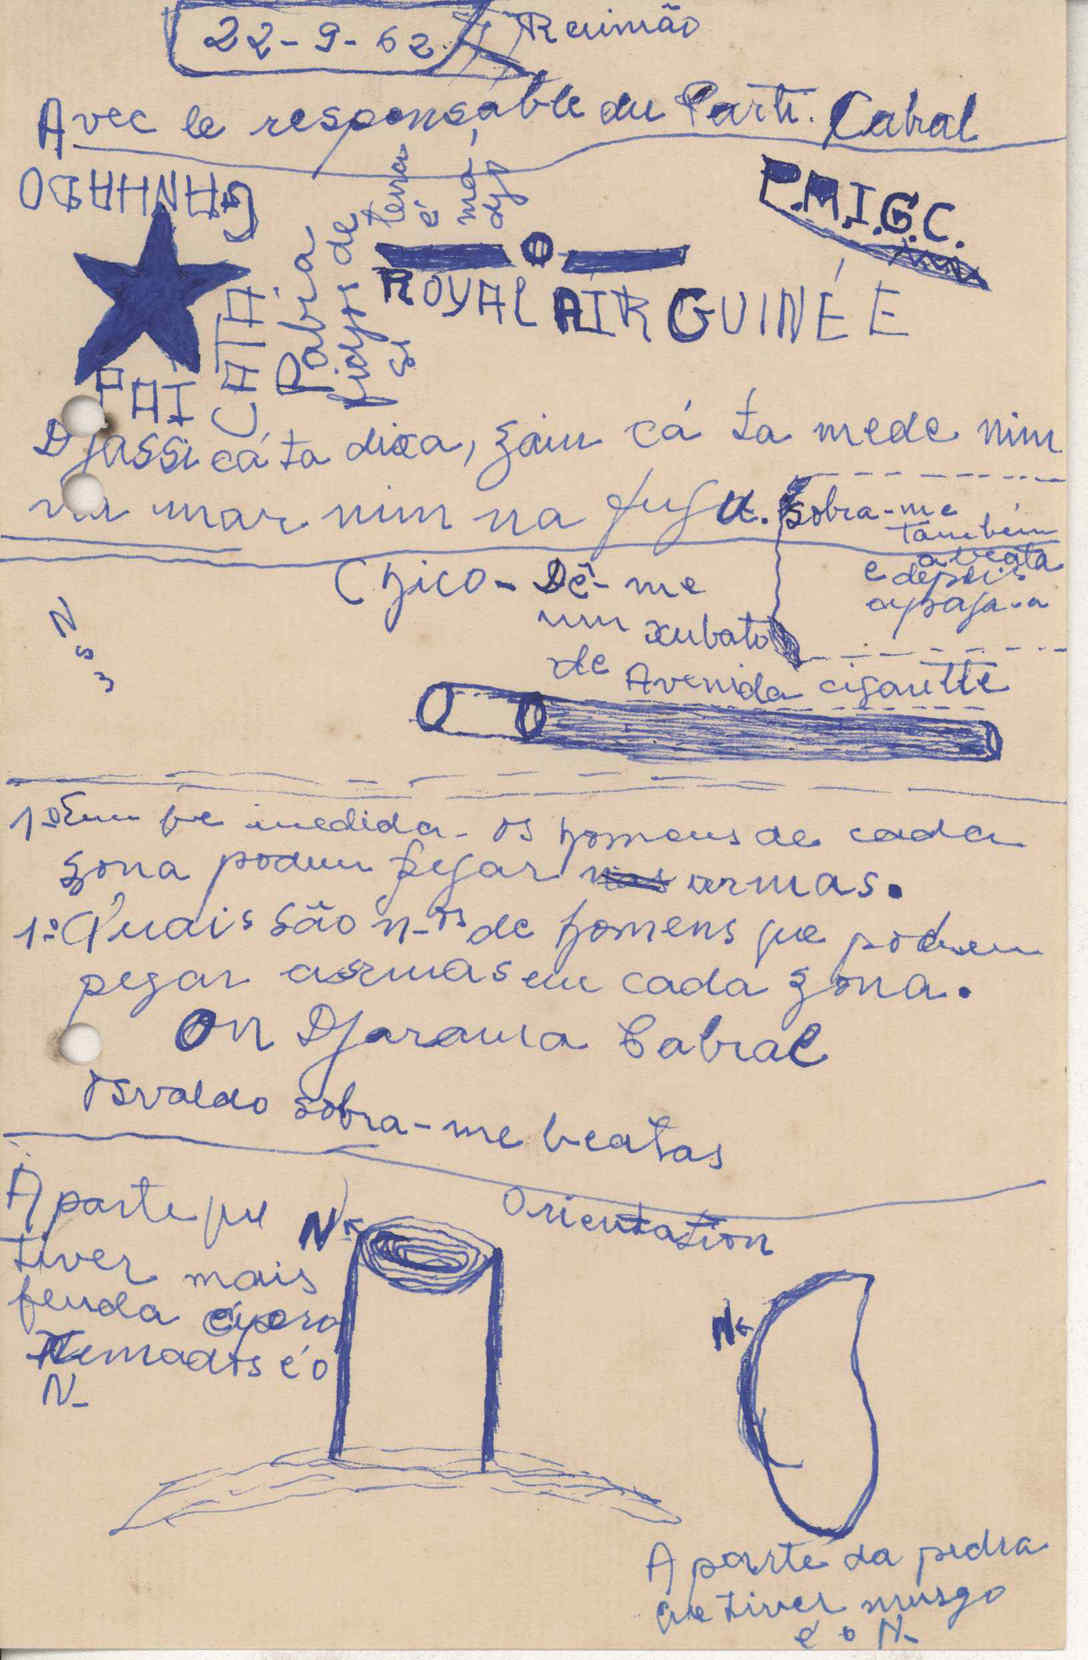 22-9-62
Reunião
Avec le responsable du Parti. Cabral
GANHADO
PAI
CATA
Pabia
fidjos de
terra
é
P.A.I.G.C.
ROYAL AIR GUINÉE
Djassi cá ta dixa, gaiu cá ta mede nim
na mar nim na fuga.
Sobra-me
também
a beata
e depois
apaga-a
Chico - Dê-me
um xubato
de Avenida cigarette
N
S
1º Em que medida - os homens de cada
zona podem pegar nas armas.
1º Quais são n-os de homens que podem
pegar as armas em cada zona.
On Djarama Cabral
Osvaldo sobra-me beatas
Orientation
A parte que
tiver mais
fenda
é o
N-
N
N
A parte da pedra
que tiver musgo
é o N-